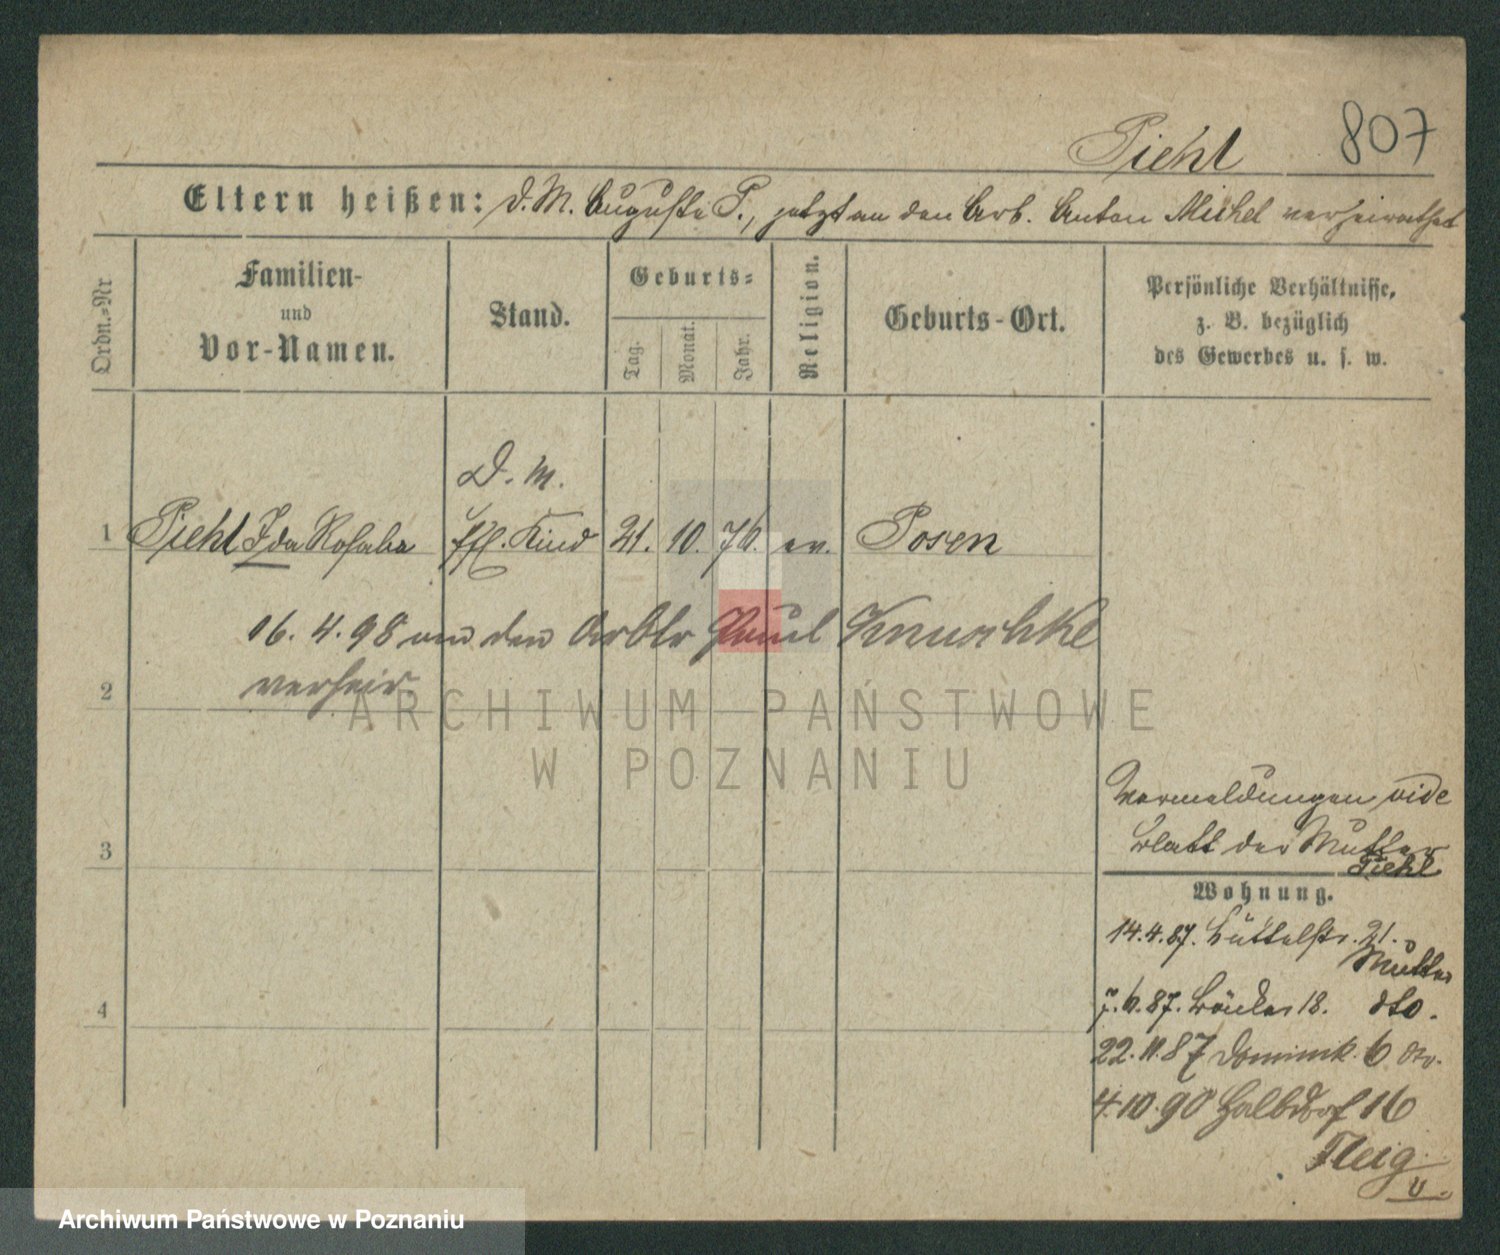 Piehl 807
Eltern heißen: d. M. Auguste P., jetzt an den Arb. Anton Michel verheirathet
Ordn.-Nr
Familien-
und
Vor-Namen.
Stand.
Geburts-
Tag.
Monat.
Jahr.
Religion.
Geburts-Ort.
Persönliche Verhältnisse,
z. B. bezüglich
des Gewerbes u. s. w.
D. M.
1 Piehl Ida Rosalie Kind 21. 10. 76. ev. Posen
16. 4. 98 an den Arbtr Paul Knuschke
2 verheir.
ARCHIWUM PAŃSTWOWE
W POZNANIU
Vermeldungen vide
3 Blatt der Mutter
Piehl
Wohnung.
14.4.87. Büttelstr. 21.
Mutter
7.6.87. Bäcker 18. dto.
4
22.11.87 Dominik. 6 dto.
4.10.90 Halbdorf 16
Fleig
Archiwum Państwowe w Poznaniu